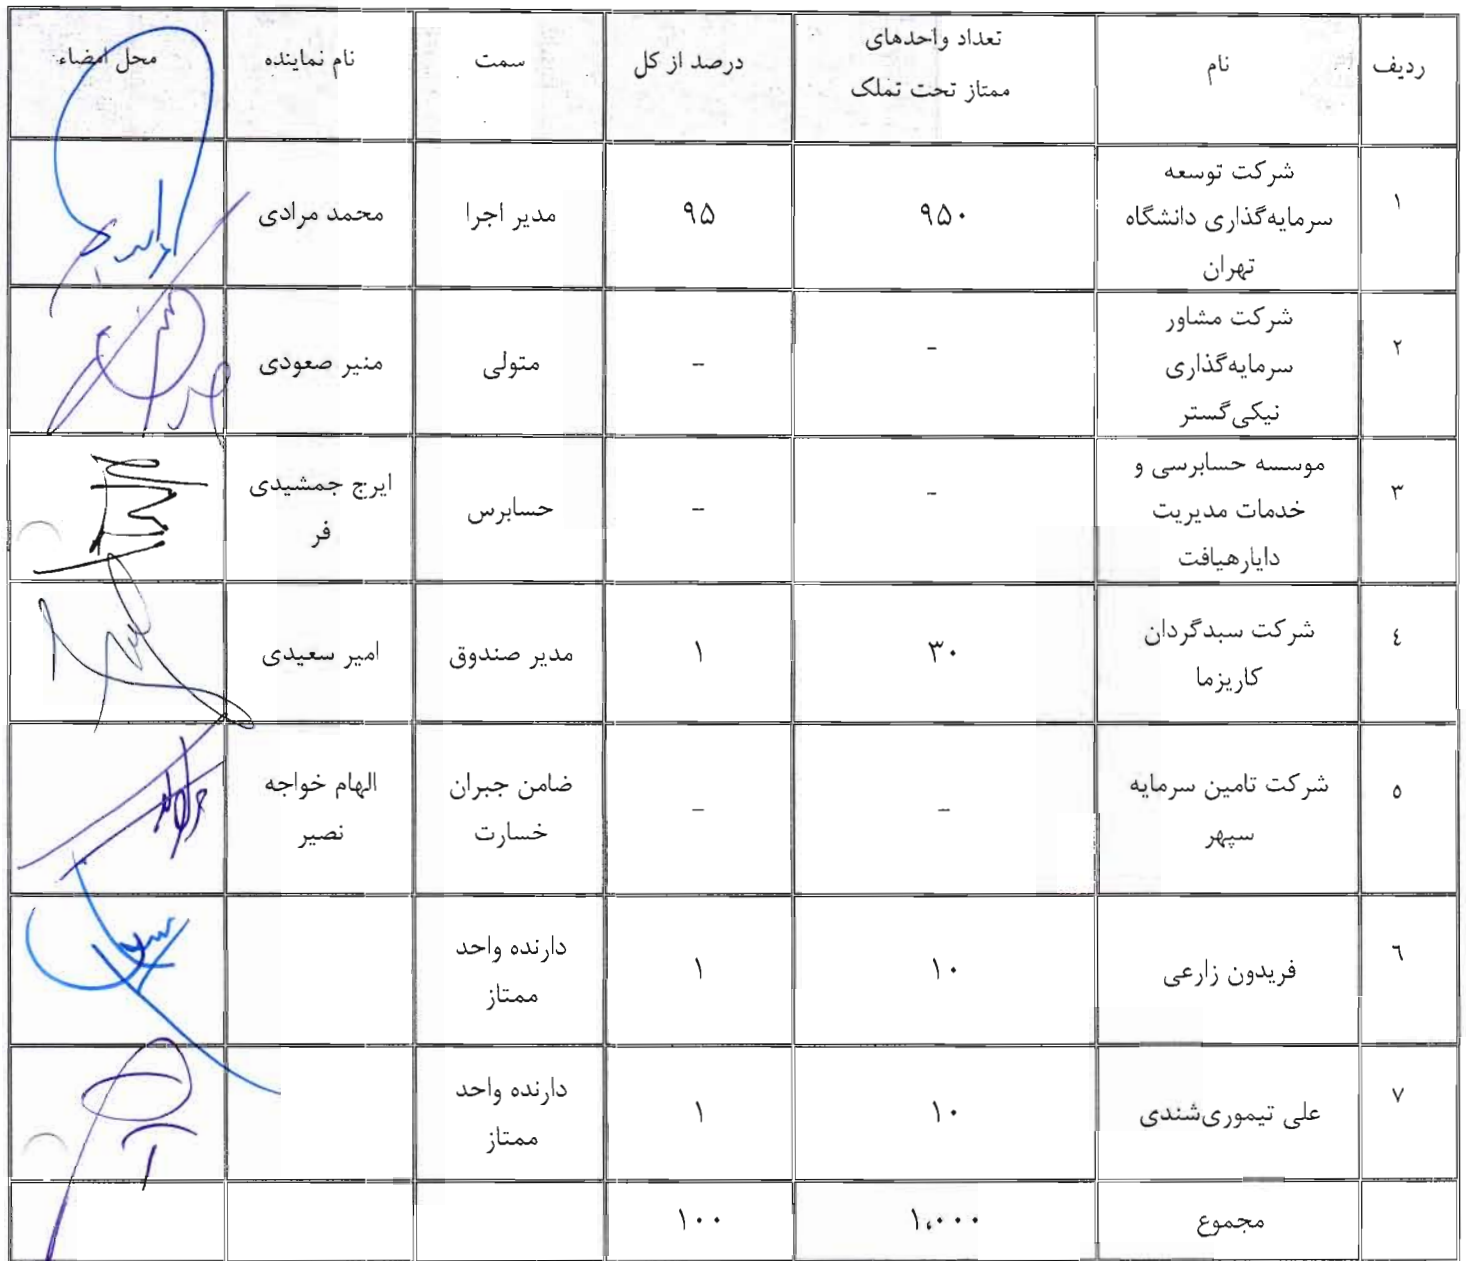 ردیف
نام
تعداد واحدهای
ممتاز تحت تملک
درصد از کل
سمت
نام نماینده
محل امضاء
۱
شرکت توسعه
سرمایه‌گذاری دانشگاه
تهران
۹۵۰
۹۵
مدیر اجرا
محمد مرادی
۲
شرکت مشاور
سرمایه‌گذاری
نیکی‌گستر
-
-
متولی
منیر صعودی
۳
موسسه حسابرسی و
خدمات مدیریت
دایارهیافت
-
-
حسابرس
ایرج جمشیدی
فر
٤
شرکت سبدگردان
کاریزما
۳۰
۱
مدیر صندوق
امیر سعیدی
٥
شرکت تامین سرمایه
سپهر
-
-
ضامن جبران
خسارت
الهام خواجه
نصیر
٦
فریدون زارعی
۱۰
۱
دارنده واحد
ممتاز
۷
علی تیموری‌شندی
۱۰
۱
دارنده واحد
ممتاز
مجموع
۱،۰۰۰
۱۰۰